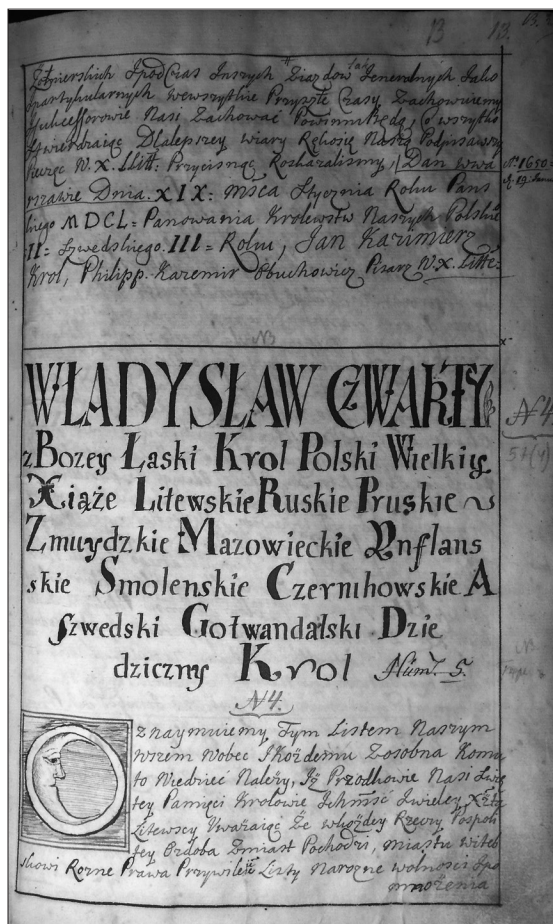 13 13.
Zołnierskich Ipod Czas Inszych Ziazdow tak Jeneralnych Jako
Ipartykularnych wewszytkie Przyszłe Czasy Zachowuiemy
Isukcessorowie Nasi Zachować Powinni będą, Co wszytko
Stwierdzaiąc Dlalepszey wiary Rękosię Naszą Podpisawszy
Pieczęc W.X.Litt: Przycisnąc Roskazalismy, Dan wwa
rszawie Dnia. XIX: Msca Stycznia Roku Pans
kiego MDCL= Panowania Krolewstw Naszych Polskie
II= Szwedskiego. III= Roku, Jan Kazimierz
Krol, Philipp. Kazemir Obuchowicz Pisarz W.X. Litte:
Ao 1650
WŁADYSŁAW CZWARTY
z Bozey Łaski Krol Polski Wielkiy
Xiąże Litewskie Ruskie Pruskie
Zmuydzkie Mazowieckie Ynflans
skie Smolenskie Czernihowskie A
Szwedski Gotwandalski Dzie
dziczny Krol Num. 5.
N4.
N4.
57(4)
Oznaymuiemy Tym Listem Naszym
Wszem Wobec IKożdemu Zosobna Komu
to Wiedzieć Należy, Iż Przodkowie Nasi Swię
tey Pamięci Krolowie Ichmść Iwielcy Xżta
Litewscy Uważaiąc Że wkożdey Rzeczy Pospoli
tey Ozdoba Zmiast Pochodzi, Miastu Witeb
skowi Rozne Prawa Przywileie Listy Narozne wolności Ipo
mnożenia